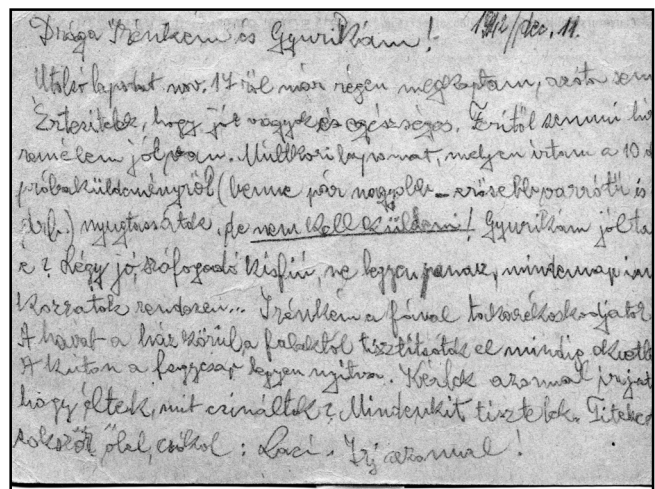 Drága Irénkém és Gyurikám! 1942/dec. 11.
Utolsó lapotat nov. 17 ről már régen megkaptam, azóta sem
Értesitelek, hogy jól vagyok és egészséges. Feritől semmi hir
remélem jól van. Multkori lapomat, melyen irtam a 10 d
próbaküldeményről (benne pár nagyobb – erősebb varrótű is
drb.) nyugtassátok, de nem kell küldeni! Gyurikám jól ta
e? Légy jó, szófogadó kisfiú, ne legyen panasz, mindennap im
kozzatok rendesen... Irénkém a fával takarékoskodjatok
A havat a ház körül, a falaktól tisztitsátok el mindig
A kúton a fagycsap legyen nyitva. Kérlek azonnal irjat
hogy éltek, mit csináltok? Mindenkit tisztelek. Titeke
sokszor ölel, csókol: Laci. Irj azonnal!